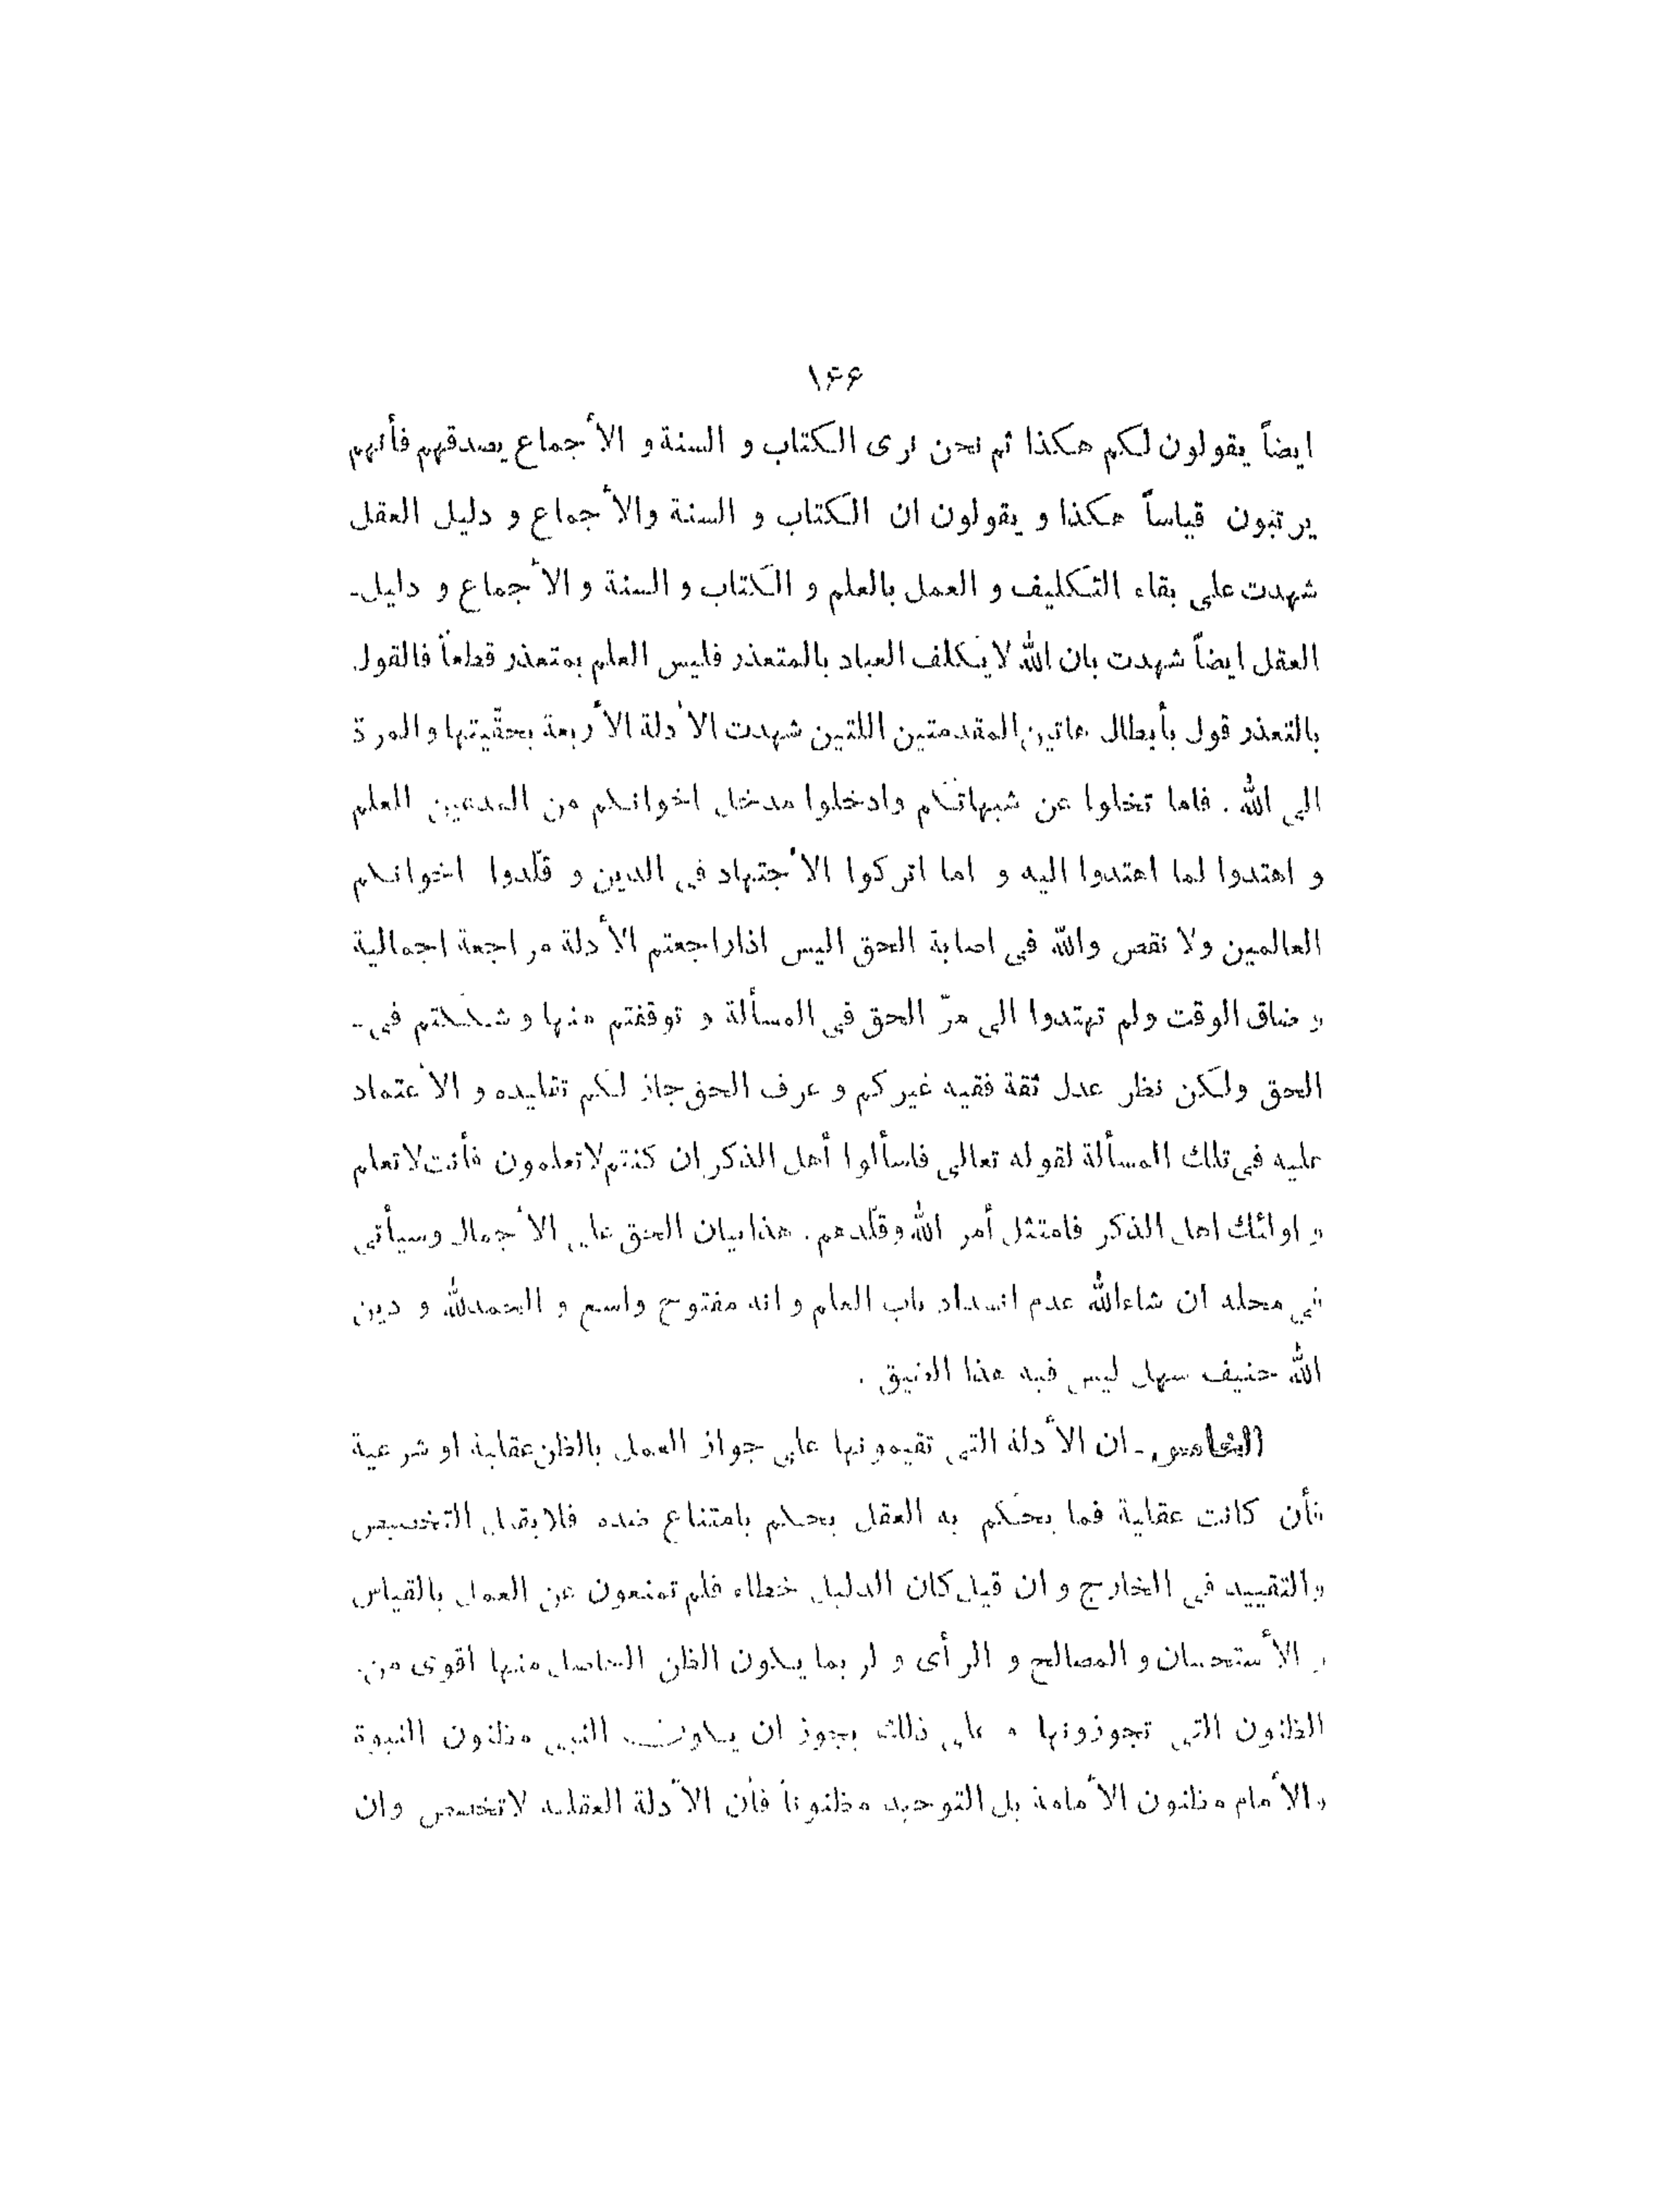 ۱۶۶
ايضاً يقولون لكم هكذا ثم نحن نرى الكتاب و السنة و الأجماع يصدقهم فأنهم
يرتبون قياساً هكذا و يقولون ان الكتاب و السنة والأجماع و دليل العقل
شهدت على بقاء التكليف و العمل بالعلم و الكتاب و السنة و الأجماع و دليل-
العقل ايضاً شهدت بان الله لايكلف العباد بالمتعذر فليس العلم بمتعذر قطعاً فالقول
بالتعذر قول بأبطال هاتين المقدمتين اللتين شهدت الأدلة الأربعة بحقّيتها و المردّ
الى الله . فاما تخلوا عن شبهاتكم وادخلوا مدخل اخوانكم من المدعين للعلم
و اهتدوا لما اهتدوا اليه و اما اتركوا الأجتهاد فى الدين و قلّدوا اخوانكم
العالمين ولا نقص والله فى اصابة الحق اليس اذاراجعتم الأدلة مراجعة اجمالية
و ضاق الوقت ولم تهتدوا الى مرّ الحق فى المسألة و توقفتم منها و شككتم فى-
الحق ولكن نظر عدل ثقة فقيه غيركم و عرف الحق جاز لكم تقليده و الأعتماد
عليه فى تلك المسألة لقوله تعالى فاسألوا أهل الذكر ان كنتم لاتعلمون فأنت لاتعلم
و اولئك اهل الذكر فامتثل أمر الله وقلّدهم . هذا بيان الحق على الأجمال وسيأتى
فى محله ان شاءالله عدم انسداد باب العلم و انه مفتوح واسع و الحمدلله و دين
الله حنيف سهل ليس فيه هذا الضيق .
الخامس - ان الأدلة التى تقيمونها على جواز العمل بالظن عقلية او شرعية
فأن كانت عقلية فما يحكم به العقل يحكم بامتناع ضده فلايقبل التخصيص
والتقييد فى الخارج و ان قيل كان الدليل خطاء فلم تمنعون عن العمل بالقياس
و الأستحسان و المصالح و الرأى و لربما يكون الظن الحاصل منها اقوى من
الظنون التى تجوزونها و على ذلك يجوز ان يكون النبى مظنون النبوة
والأمام مظنون الأمامة بل التوحيد مظنوناً فأن الأدلة العقليه لاتخصص وان